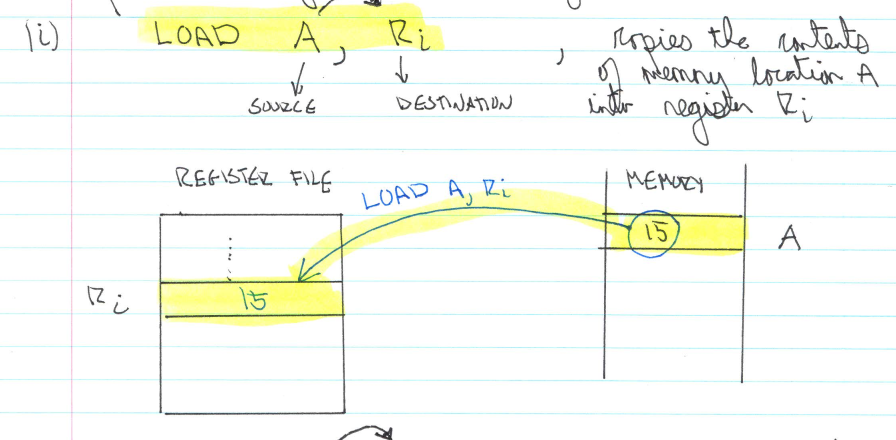 (i) LOAD A, Ri , copies the contents
of memory location A
into register Ri
SOURCE DESTINATION
REGISTER FILE
LOAD A, Ri
MEMORY
15 A
Ri 15